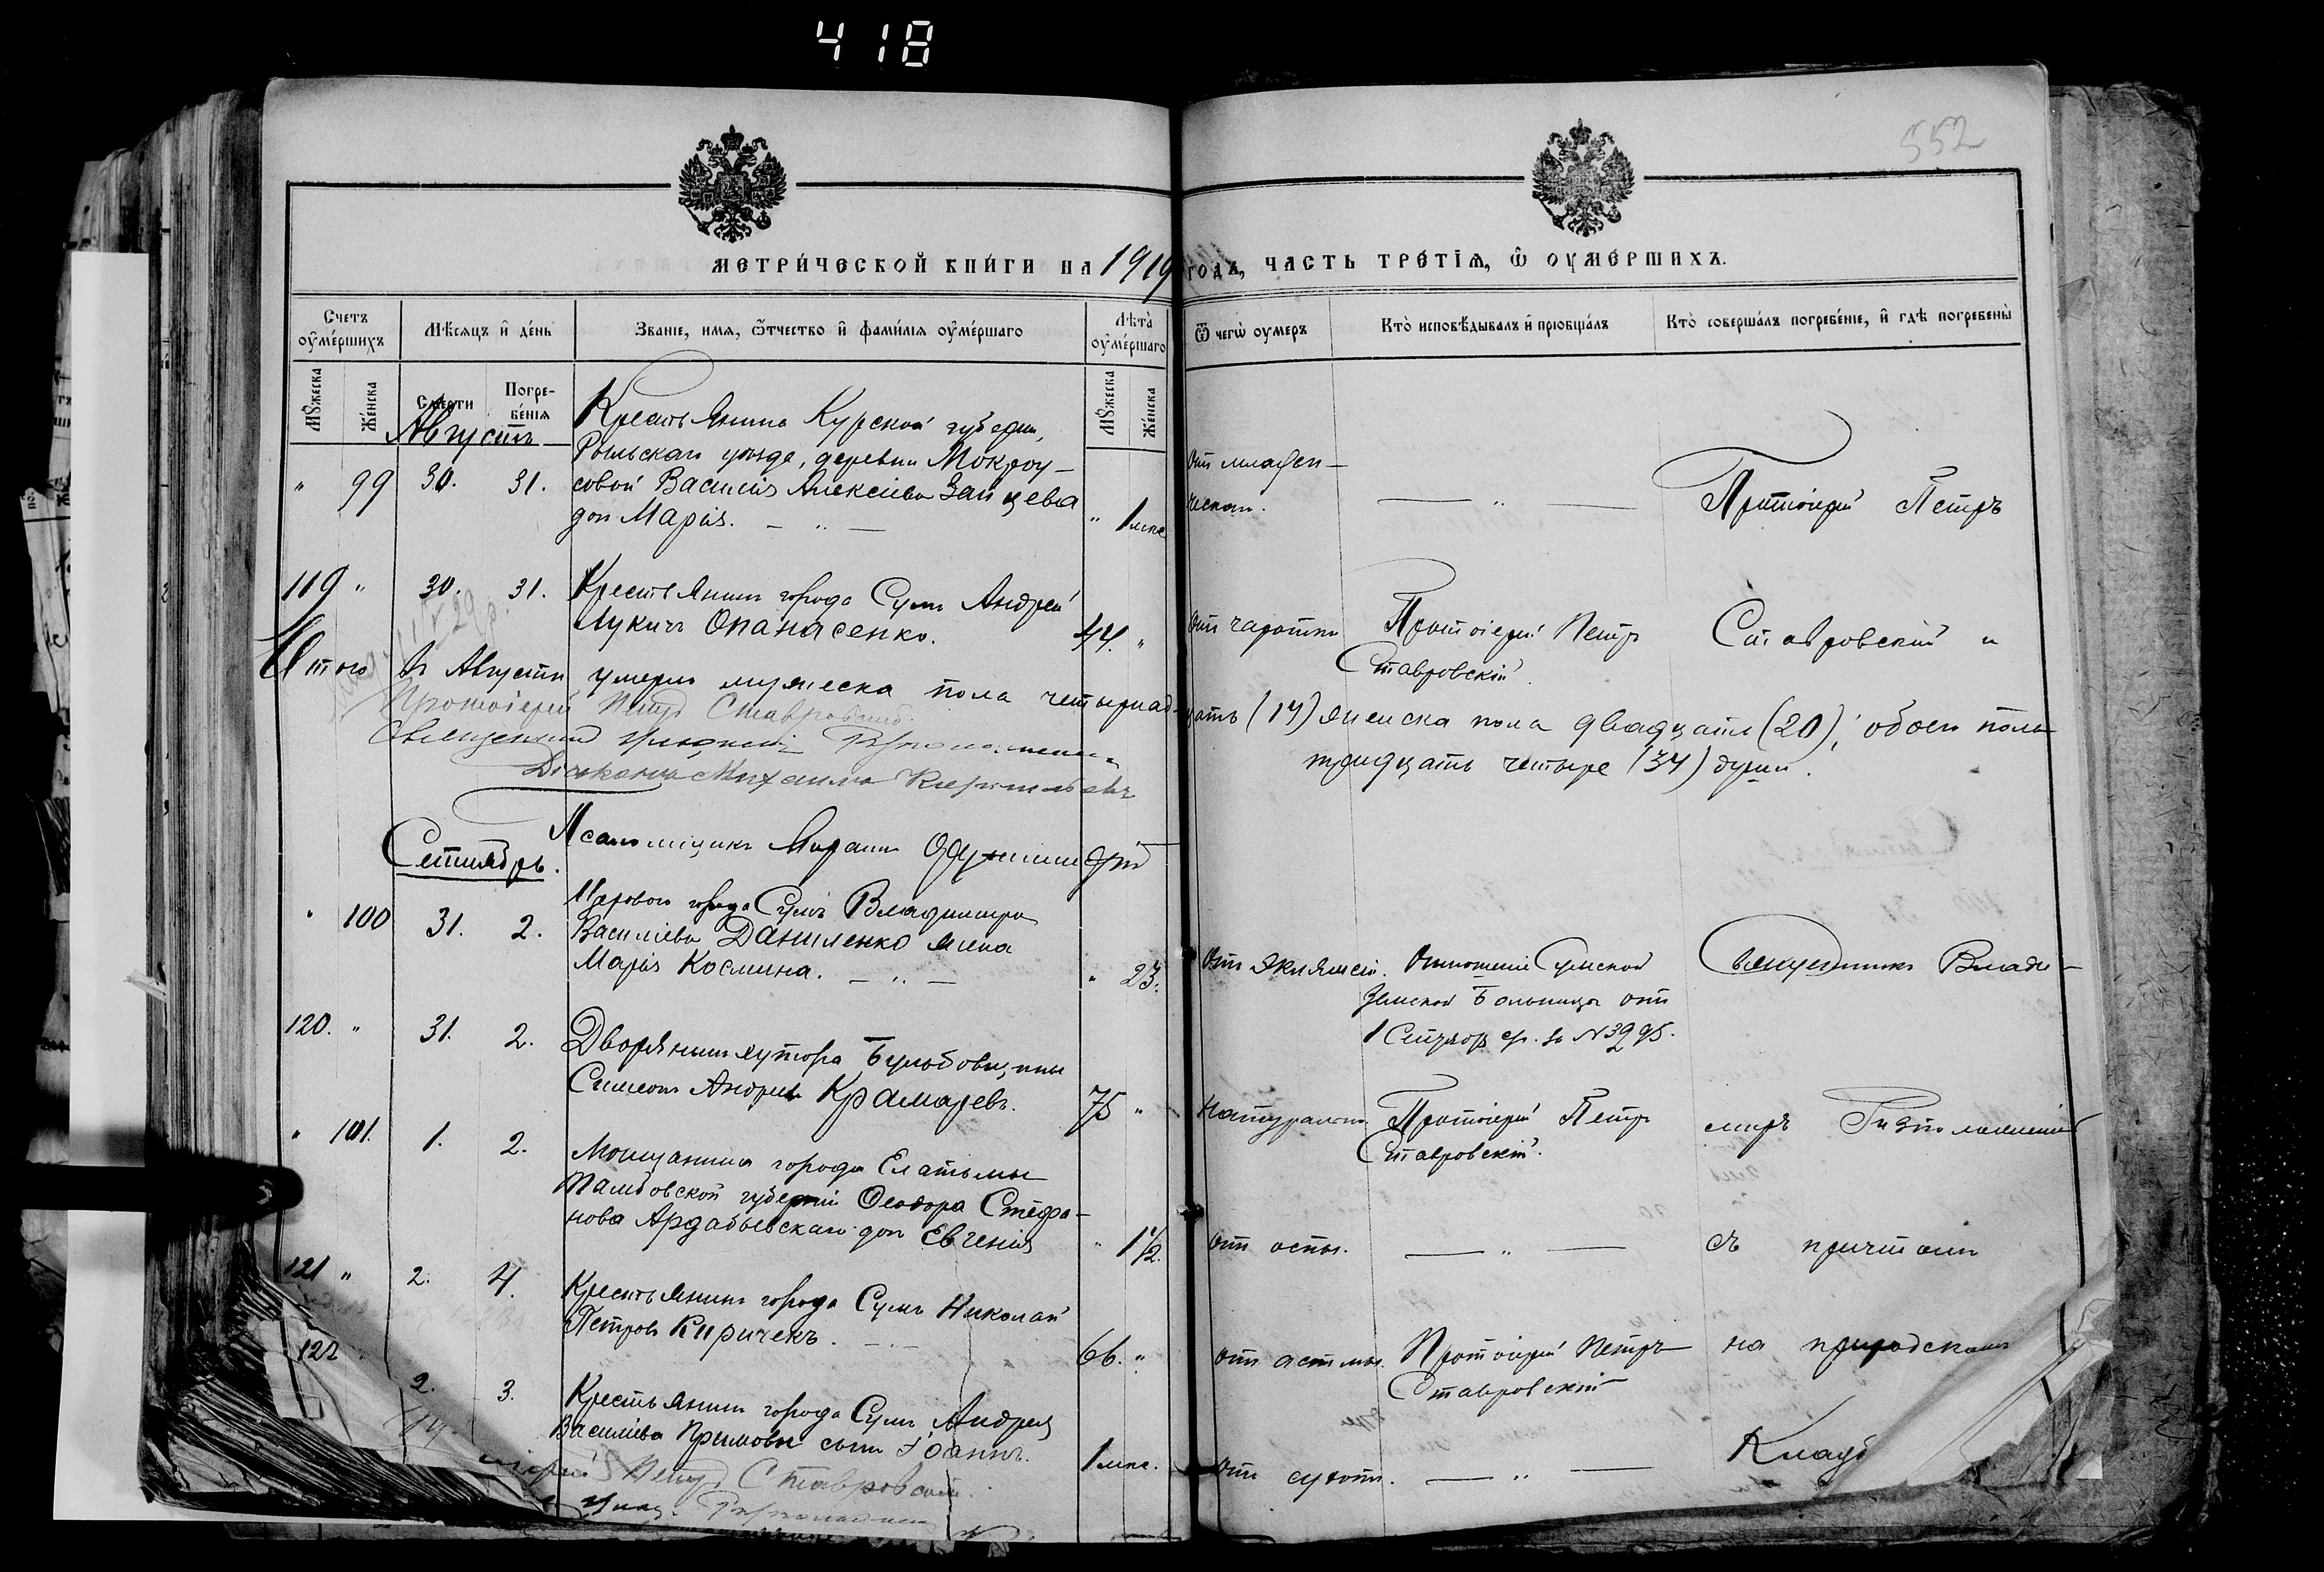 418
552
МЕТРИ́ЧЕСКОЙ КНИ́ГИ НА 1919 ГОДЪ, ЧАСТЬ ТРЕ́ТІѦ, Ѡ҆ ОУМЕ́РШИХЪ.
Счетъ оу҆ме́ршихъ
Мѣ́сяцъ и҆ де́нь
Зва́ніе, и́мя, ѿтчество и҆ фами́лія оу҆ме́ршаго
Лѣта̀ оу҆ме́ршаго
Ѿ чегѡ̀ оумеръ
Кто̀ исповѣ́дывалъ и҆ пріобща́лъ
Кто̀ соверша́лъ погребе́ніе, и҆ гдѣ̀ погребены̀
Мꙋжеска
Же́нска
Сме́рти
Погре-
бе́нія
Мꙋжеска
Же́нска
Августъ
Крестьянина Курской губерніи,
Рыльскаго уѣзда, деревни Мокроу-
" 99 30. 31. совой Василія Алексіева Зайцева
дочь Марія. — " —
" 1 мѣс.
отъ младен-
ческой.
— " —
Протоіерей Петръ
119 " 30. 31. Крестьянинъ города Сумъ Андрей
Лукичъ Опанасенко.
44. "
отъ чахотки
Протоіерей Петръ
Ставровскій.
Ставровскій и
Итого въ Августѣ умерло мужеска пола четырнад-
цать (14) женска пола двадцать (20), обоего пола
тридцать четыре (34) души.
Протоіерей Петръ Ставровскій.
Священникъ
Діаконъ Михаилъ
Псаломщикъ
Сентябрь.
" 100 31. 2.
города Сумъ Владиміра
Василіева Даниленко жена
Марія Космина. — " —
" 23.
отъ эклямсіи.
Отношеніе Сумской
Земской Больницы отъ
1 Сентября с.г. за № 3995.
Священникъ Влади-
120. " 31. 2. Дворянинъ хутора
Симеонъ Андреевъ Крамаревъ.
75 "
натурально.
Протоіерей Петръ
Ставровскій.
міръ
" 101. 1. 2. Мѣщанина города Елатьмы
Тамбовской губерніи Ѳеодора Стефа-
нова Ардабьевскаго дочь Евгенія
" 1 1/2.
отъ оспы.
— " —
съ причтомъ
121 " 2. 4. Крестьянинъ города Сумъ Николай
Петровъ Киричекъ. — " —
66. "
отъ астмы.
Протоіерей Петръ
Ставровскій
на приходскомъ
122 2. 3. Крестьянина города Сумъ Андрея
Василіева сынъ Іоаннъ.
1 мѣс.
отъ сухотъ.
— " —
Кладб
Петръ Ставровскій.